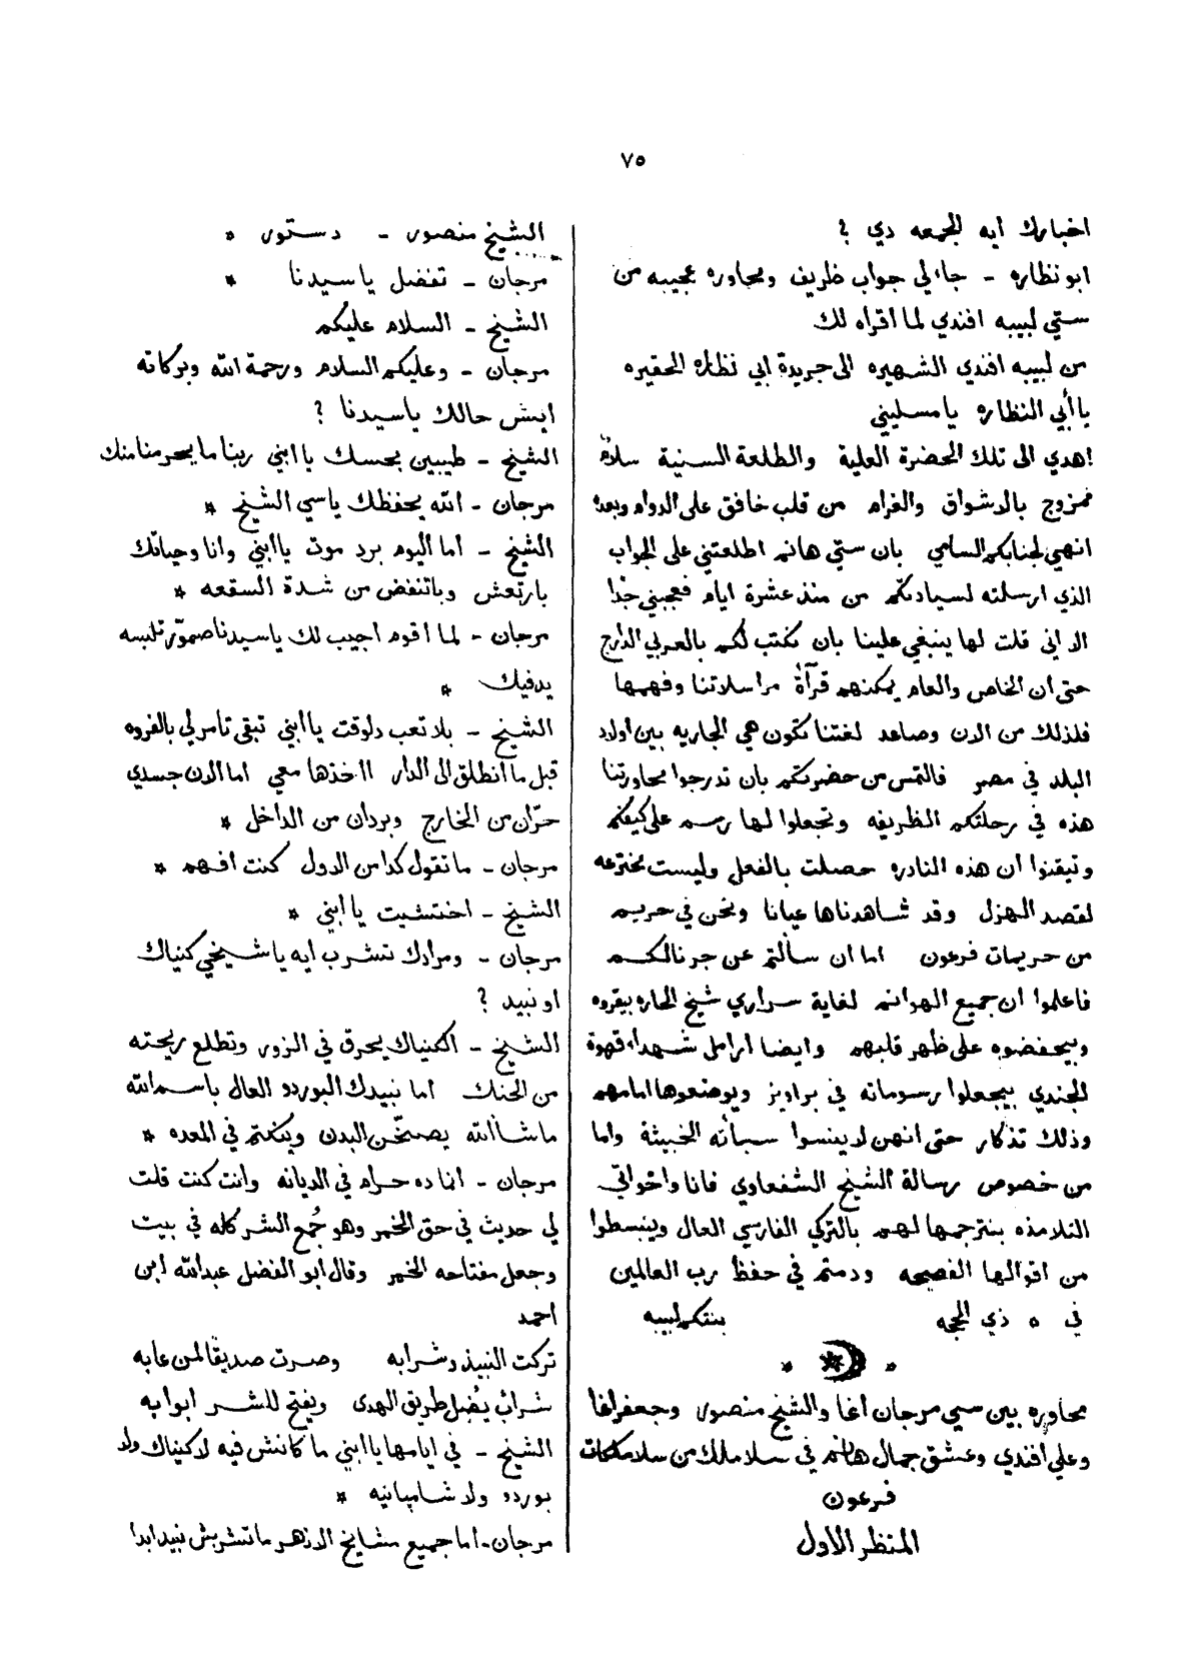 ٧٥
اخبارك ايه الجمعه دي ؟
ابو نظاره - جاء لي جواب ظريف ومحاوره عجيبه من
ستي لبيبه افندي لما اقراه لك
من لبيبه افندي الشهيره الى جريدة ابي نظاره الحقيره
يا أبي النظاره يا مسليني
اهدي الى تلك الحضرة العلية والطلعة السنية سلامً
ممزوج بالاشواق والغرام من قلب خافق على الدوام وبعده
انهي لجنابكم السامي بان ستي هانم اطلعتني على الجواب
الذي ارسلته لسيادتكم من منذ عشرة ايام فعجبني جدًا
الا اني قلت لها ينبغي علينا بان نكتب لكم بالعربي الدارج
حتى ان الخاص والعام يمكنهم قرآة مراسلاتنا وفهمها
فلذلك من الان وصاعد لغتنا تكون هي الجاريه بين اولاد
البلد في مصر فالتمس من حضرتكم بان تدرجوا محاورتنا
هذه في رحلتكم الظريفه وتجعلوا لها رسم على كيفكم
وتيقنوا ان هذه النادره حصلت بالفعل وليست مخترعه
لقصد الهزل وقد شاهدناها عيانا ونحن في حريم
من حريمات فرعون اما ان سألتم عن جرنالكم
فاعلموا ان جميع الهوانم لغاية سراري شيخ الحاره بيقروه
وبيحفضوه على ظهر قلبهم وايضا ارامل شهداء قهوة
الجندي بيجعلوا رسوماته في براويز ويوضعوها امامهم
وذلك تذكار حتى انهن لا ينسوا سبأته الخبيثة واما
من خصوص رسالة الشيخ الشفعاوي فانا واخواتي
التلامذه بنترجمها لهم بالتركي الفارسي العال وينبسطوا
من اقوالها الفصيحه ودمتم في حفظ رب العالمين
في ٥ ذي الحجه بنتكم لبيبه
محاوره بين سي مرجان اغا والشيخ منصور وجعفر اغا
وعلي افندي وعشق جمال هانم في سلاملك من سلاملكات
فرعون
المنظر الاول
الشيخ منصور - دستور *
مرجان - تفضل يا سيدنا *
الشيخ - السلام عليكم
مرجان - وعليكم السلام ورحمة الله وبركاته
ايش حالك يا سيدنا ؟
الشيخ - طيبين بحسك يا ابني ربنا ما يحرمنا منك
مرجان - الله يحفظك يا سي الشيخ *
الشيخ - اما اليوم برد موت يا ابني وانا وحياتك
بارتعش وباتنفض من شدة السقعه *
مرجان - لما اقوم اجيب لك يا سيدنا صموّر تلبسه
يدفيك *
الشيخ - بلا تعب دلوقت يا ابني تبقى تأمر لي بالفروه
قبل ما انطلق الى الدار ااخذها معي اما الان جسدي
حرّان من الخارج وبردان من الداخل *
مرجان - ما تقول كدا من الاول كنت افهم *
الشيخ - اختشيت يا ابني *
مرجان - ومرادك تشرب ايه يا شيخي كنياك
او نبيد ؟
الشيخ - الكنياك يحرق في الزور وتطلع ريحته
من الحنك اما نبيدك البوردو العال باسم الله
ما شاالله يصخّن البدن وينكتم في المعده *
مرجان - انما ده حرام في الديانه وانت كنت قلت
لي حديث في حق الخمر وهو جُمع الشر كله في بيت
وجعل مفتاحه الخمر وقال أبو الفضل عبد الله ابن
احمد
تركت النبيذ وشرابه وصرت صديقًا لمن عابه
شرابٌ يُضِل طريق الهدى ويفتح للشر ابوابه
الشيخ - في ايامها يا ابني ما كانش فيه لا كنياك ولا
بوردو ولا شامبانيه *
مرجان - اما جميع مشايخ الازهر ما تشربش نبيد ابدا